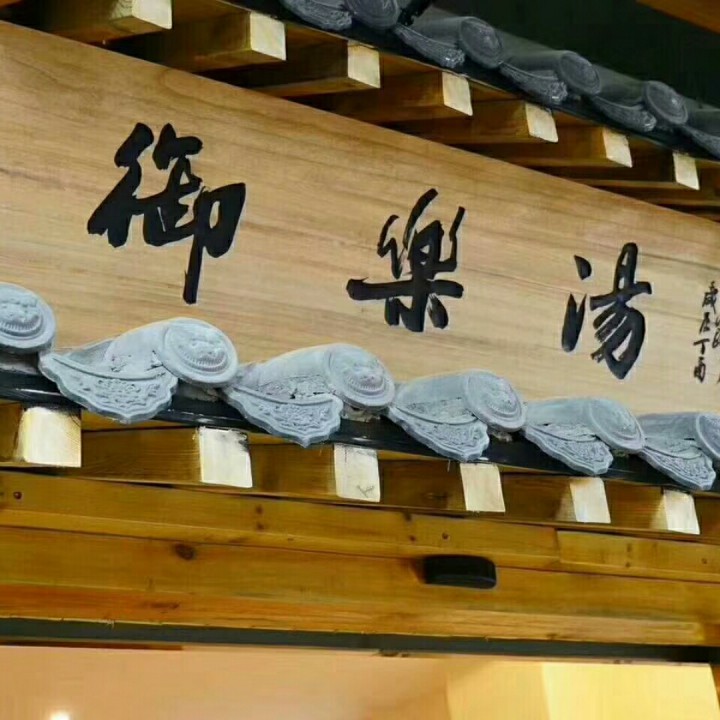 御樂湯
歲居丁酉